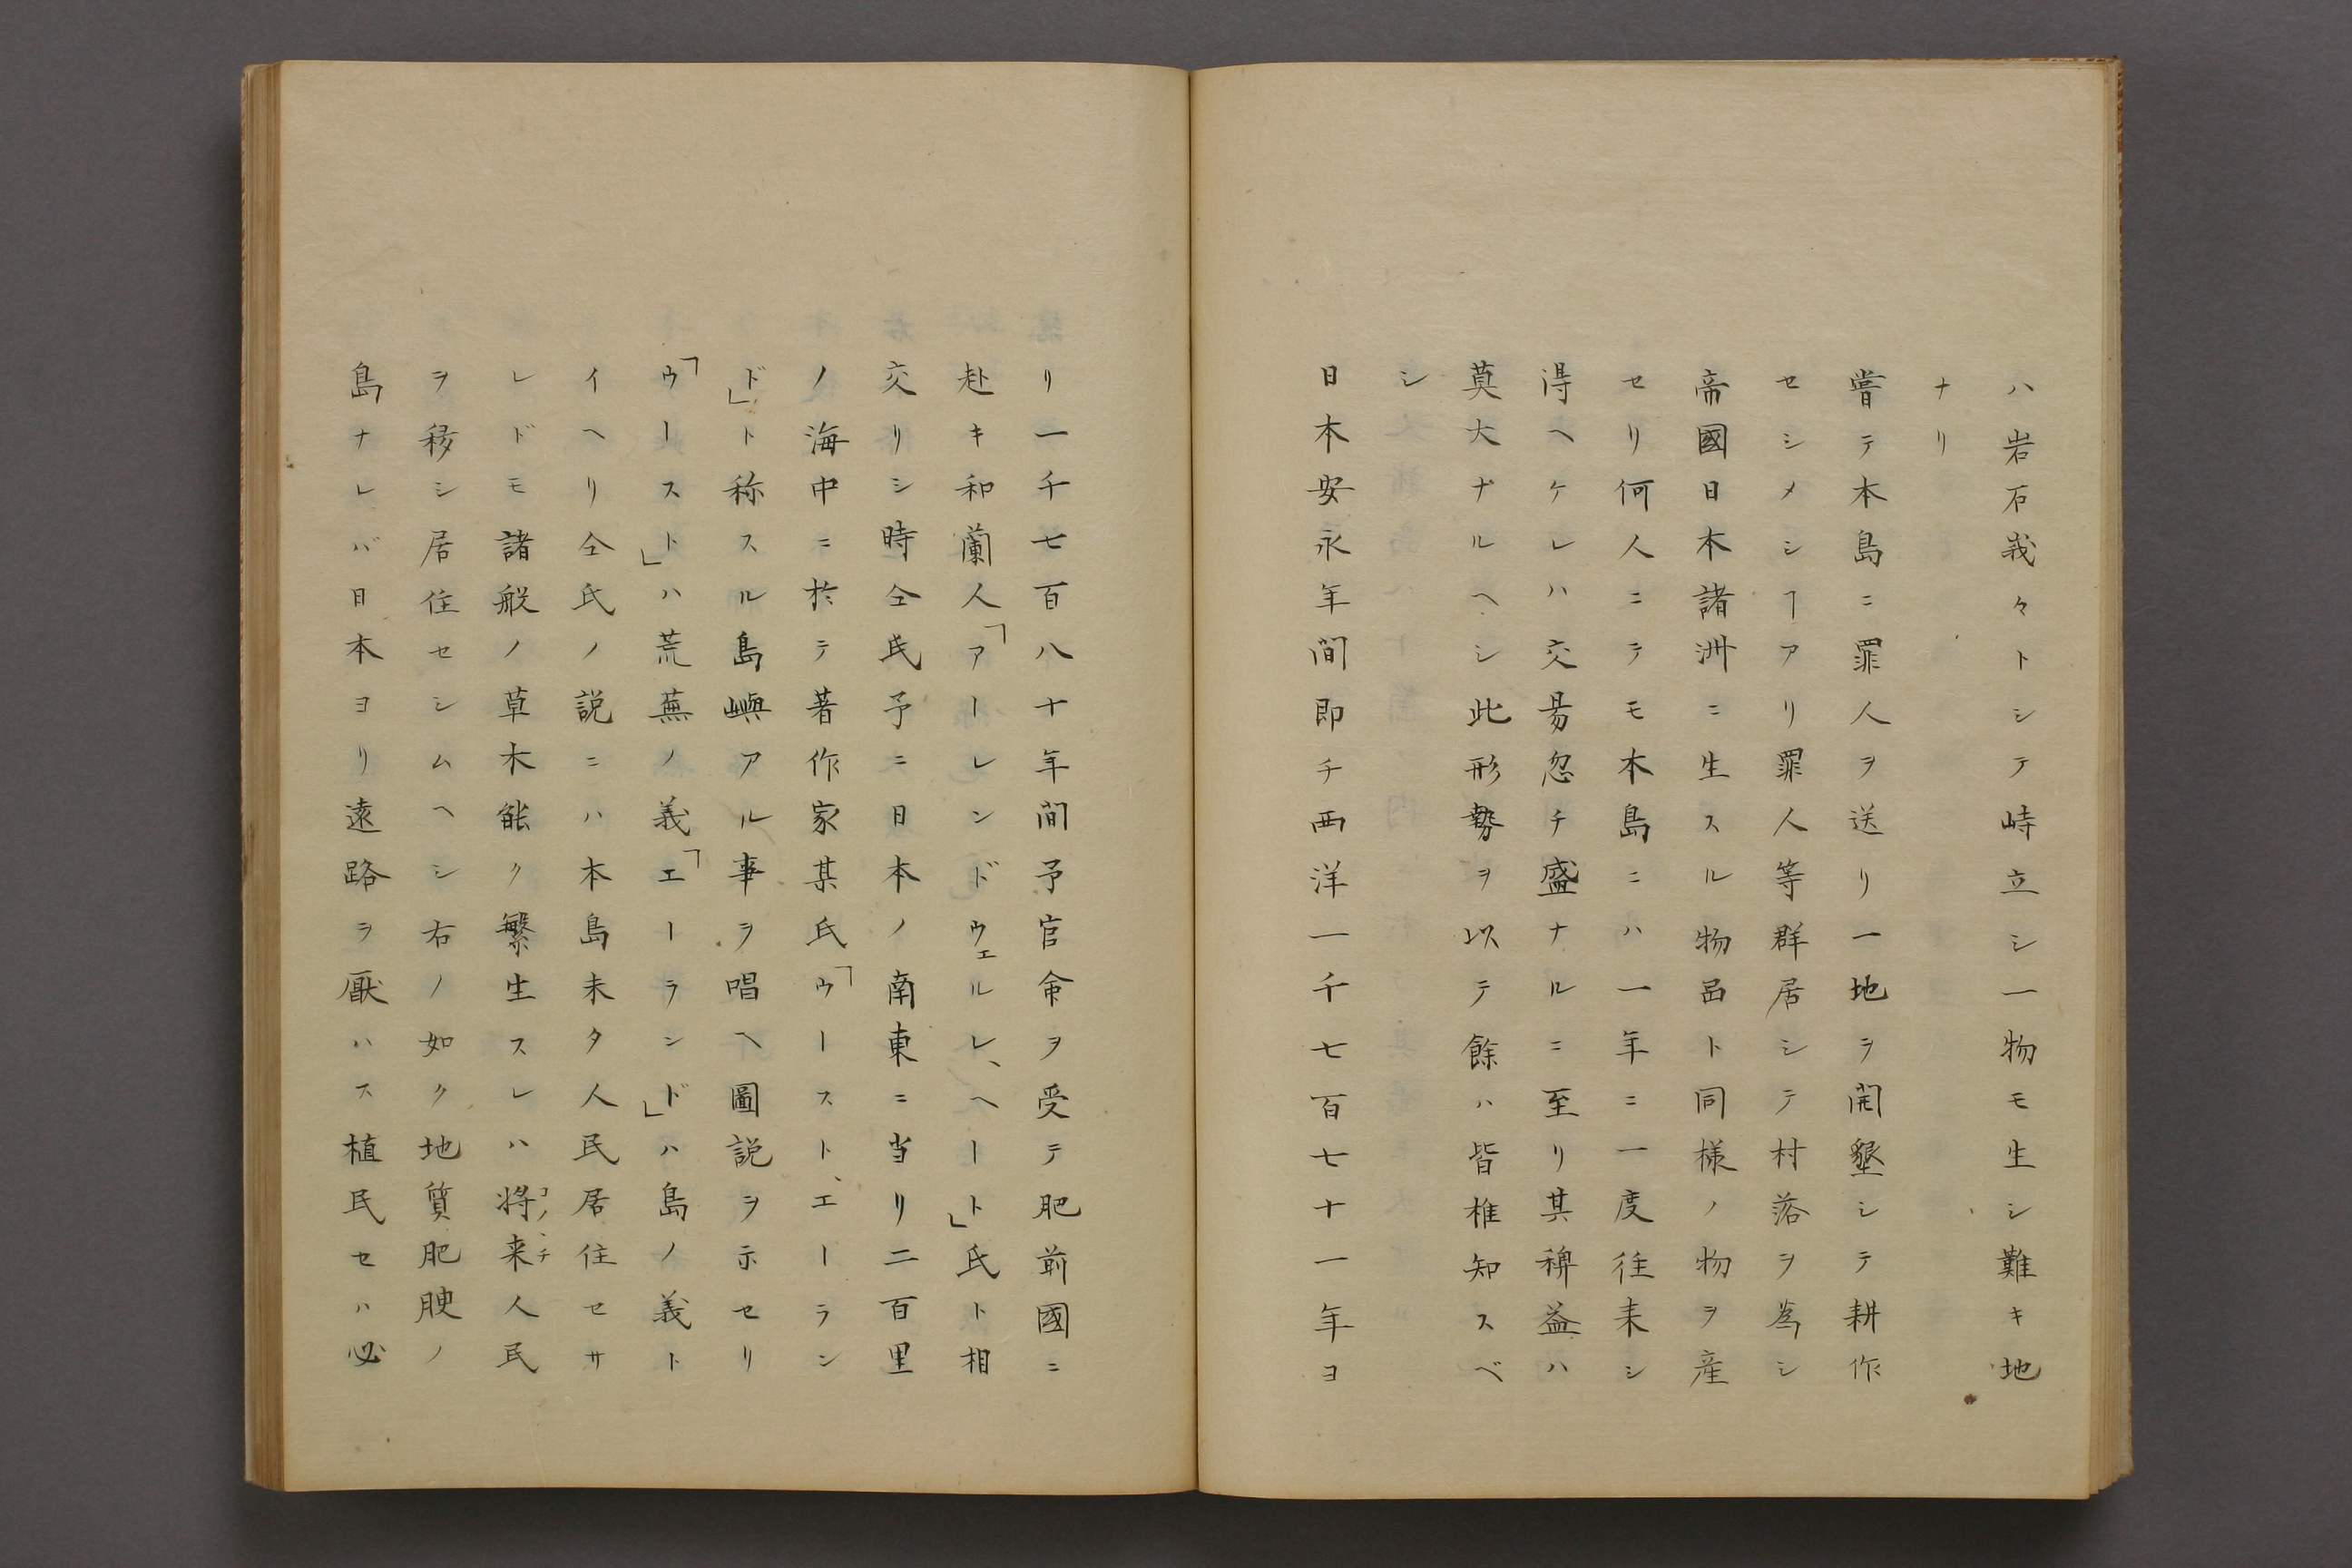 ハ岩石峩々トシテ峙立シ一物モ生シ難キ地
ナリ
嘗テ本島ニ罪人ヲ送リ一地ヲ開墾シテ耕作
セシメシヿアリ罪人等群居シテ村落ヲ為シ
帝國日本諸洲ニ生スル物品ト同様ノ物ヲ産
セリ何人ニテモ本島ニハ一年ニ一度往来シ
得ヘケレハ交易忽チ盛ナルニ至リ其稗益ハ
莫大ナルヘシ此形勢ヲ以テ餘ハ皆椎知スベ
シ
日本安永年間即チ西洋一千七百七十一年ヨ
リ一千七百八十年间予官命ヲ受テ肥前國ニ
赴キ和蘭人「アーレンドウェルレ、ヘート」氏ト相
交リシ時仝氏予ニ日本ノ南東ニ当リ二百里
ノ海中ニ於テ著作家某氏「ウースト、エーラン
ド」ト称スル島嶼アル事ヲ唱ヘ圖説ヲ示セリ
「ウースト」ハ荒蕪ノ義「エーランド」ハ島ノ義ト
イヘリ仝氏ノ説ニハ本島未タ人民居住セサ
レドモ諸般ノ草木能ク繁生スレハ将来人民
ヲ移シ居住セシムヘシ右ノ如ク地質肥腴ノ
島ナレバ日本ヨリ遠路ヲ厭ハス植民セハ必